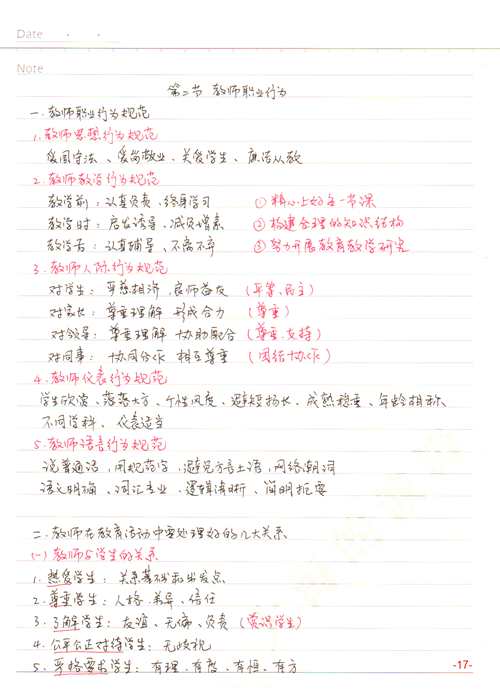 Date
Note
第二节 教师职业行为
一.教师职业行为规范
1.教师思想行为规范
爱国守法、爱岗敬业、关爱学生、廉洁从教
2.教师教学行为规范
教学前:认真负责、终身学习 ①精心上好每一节课
教学时:启发诱导、减负增素 ②构建合理的知识结构
教学后:认真辅导、不离不弃 ③努力开展教育教学研究
3.教师人际行为规范
对学生:平等相济,良师益友(平等、民主)
对家长:尊重理解 形成合力(尊重)
对领导:尊重理解 协助配合(尊重.支持)
对同事:协同合作 相互尊重(团结协作)
4.教师仪表行为规范
学生欣赏、落落大方、个性风度、避短扬长、成熟稳重、年龄相称、
不同学科、仪表适当
5.教师语言行为规范
说普通话,用规范字,避免方言土语,网络潮词
语义明确、词汇专业、逻辑清晰、简明扼要
二.教师在教育活动中要处理好的几大关系
(一)教师与学生的关系
1.热爱学生:关系基础和出发点
2.尊重学生:人格.差异、信任
3.了解学生:友谊、无偏、负责(赏识学生)
4.公平公正对待学生:无歧视
5.严格要求学生:有理.有度.有恒.有方
-17-